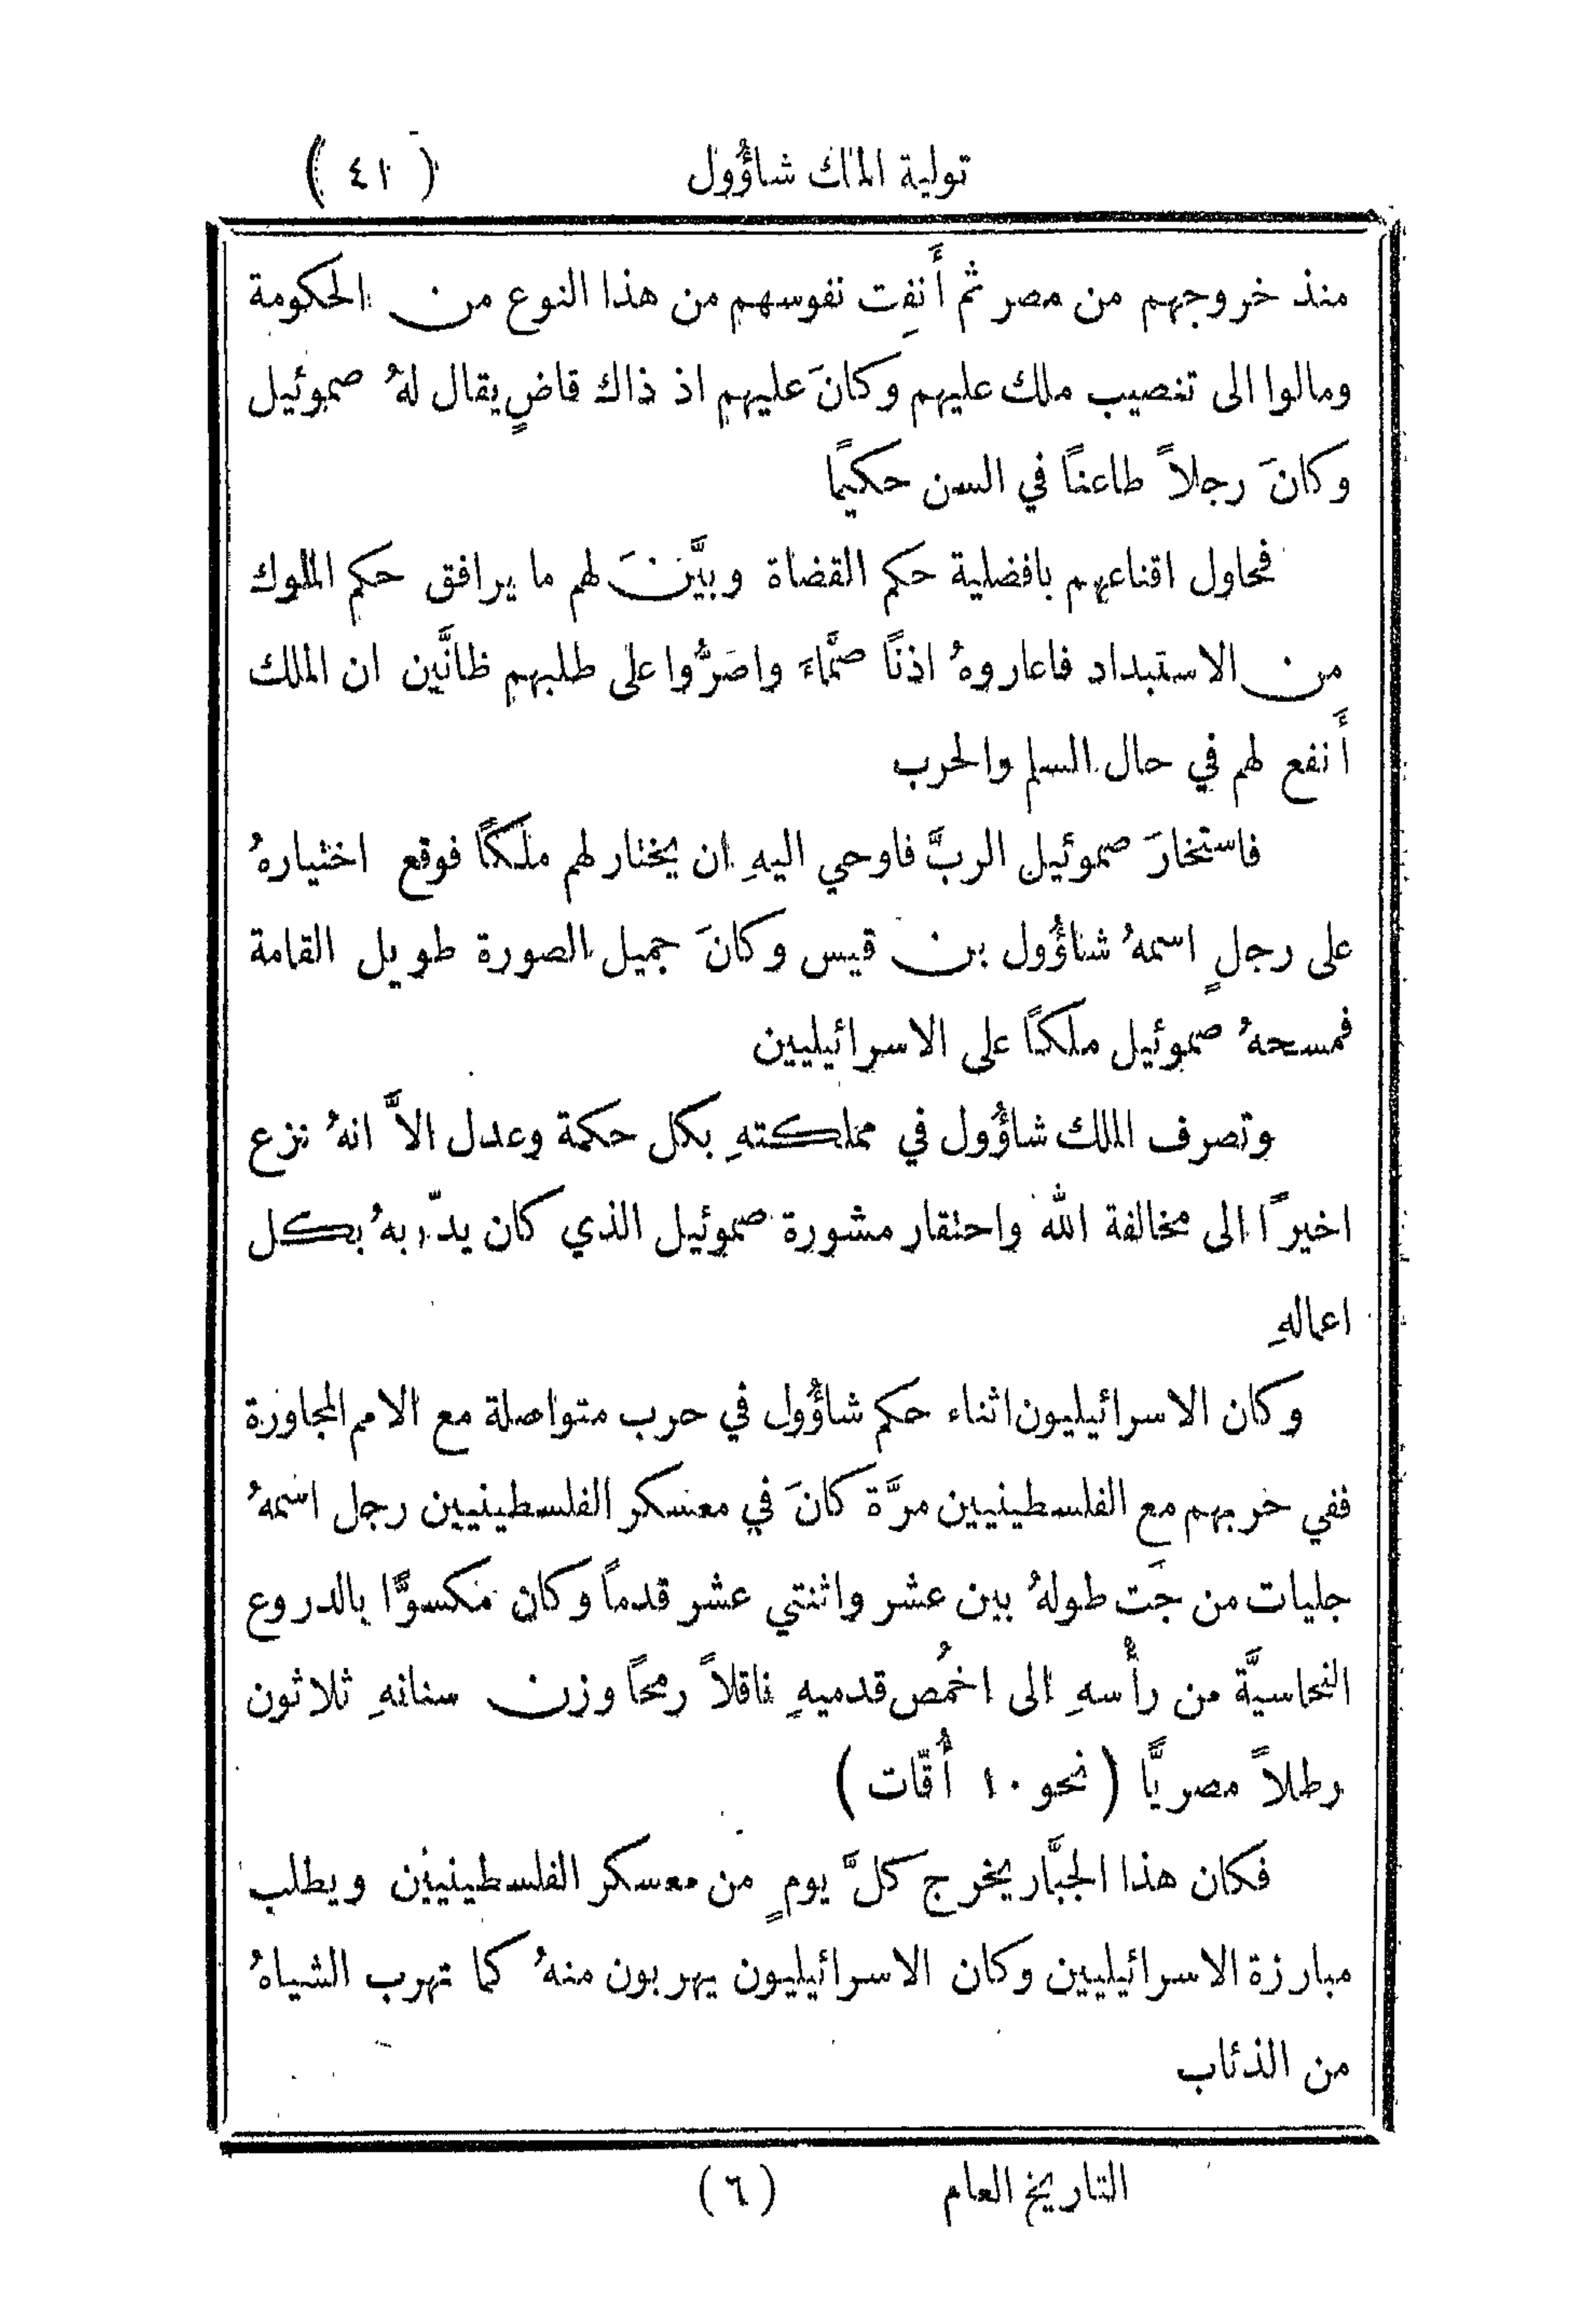 تولية الملك شاؤُول (٤١)
منذ خروجهم من مصر ثم أَنفِت نفوسهم من هذا النوع من الحكومة
ومالوا الى تنصيب ملك عليهم وكانَ عليهم اذ ذاك قاضٍ يقال لهُ صموئيل
وكانَ رجلاً طاعناً في السن حكيًما
فحاول اقناعهم بافضلية حكم القضاة وبيَّنَ لهم ما يرافق حكم الملوك
من الاستبداد فاعاروهُ اذنًا صمَّاءَ واصَرُّوا على طلبهم ظانَّين ان الملك
أَنفع لهم في حال السلم والحرب
فاستخارَ صموئيل الربَّ فاوحي اليهِ ان يختار لهم ملكًا فوقع اختيارهُ
على رجلٍ اسمهُ شاؤُول بن قيس وكانَ جميل الصورة طويل القامة
فمسحهُ صموئيل ملكًا على الاسرائيليين
وتصرف الملك شاؤُول في مملكتهِ بكل حكمة وعدل الاَّ انهُ نزع
اخيرًا الى مخالفة الله واحتقار مشورة صموئيل الذي كان يدّربهُ بكل
اعمالهِ
وكان الاسرائيليون اثناء حكم شاؤُول في حرب متواصلة مع الامم المجاورة
ففي حربهم مع الفلسطينيين مرَّة كانَ في معسكر الفلسطينيين رجل اسمهُ
جليات من جَت طولهُ بين عشر واثنتي عشر قدماً وكان مكسوًّا بالدروع
النحاسيَّة من رأْسهِ الى اخمُص قدميهِ ناقلاً رمحًا وزن سنانهِ ثلاثون
رطلاً مصريًّا (نحو ١٠ أُقّات)
فكان هذا الجبَّار يخرج كلَّ يومٍ من معسكر الفلسطينيين ويطلب
مبارزة الاسرائيليين وكان الاسرائيليون يهربون منهُ كما تهرب الشياهُ
من الذئاب
التاريخ العام (٦)